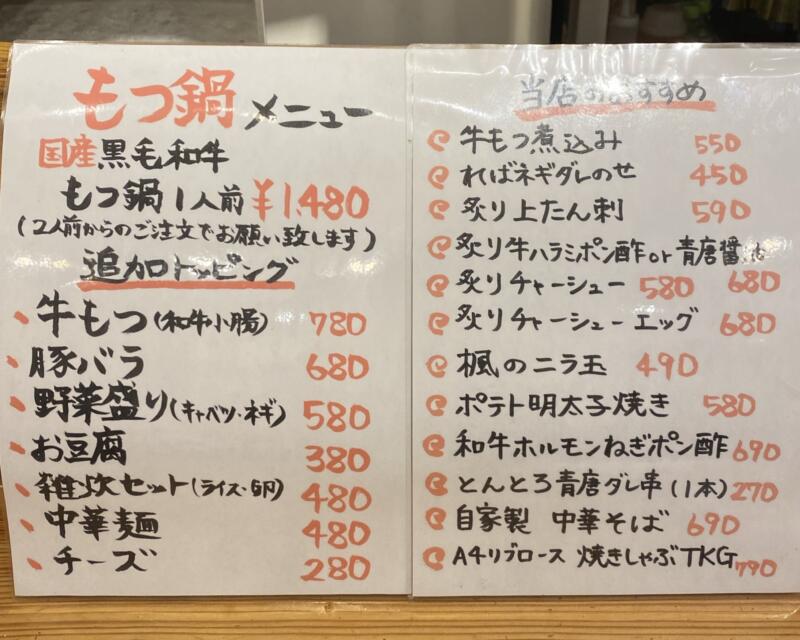 もつ鍋 メニュー
国産黒毛和牛
もつ鍋1人前 ¥1,480
(2人前からのご注文でお願い致します)
追加トッピング
牛もつ(和牛小腸) 780
豚バラ 680
野菜盛り(キャベツ・ネギ) 580
お豆腐 380
雑炊セット(ライス・卵) 480
中華麺 480
チーズ 280
当店のおすすめ
牛もつ煮込み 550
ればネギダレのせ 450
炙り上たん刺 590
炙り牛ハラミポン酢or青唐醤油
680
炙りチャーシュー 580
炙りチャーシューエッグ 680
楓のニラ玉 490
ポテト明太子焼き 580
和牛ホルモンねぎポン酢 690
とんとろ青唐ダレ串(1本) 270
自家製 中華そば 690
A4リブロース 焼きしゃぶTKG 790